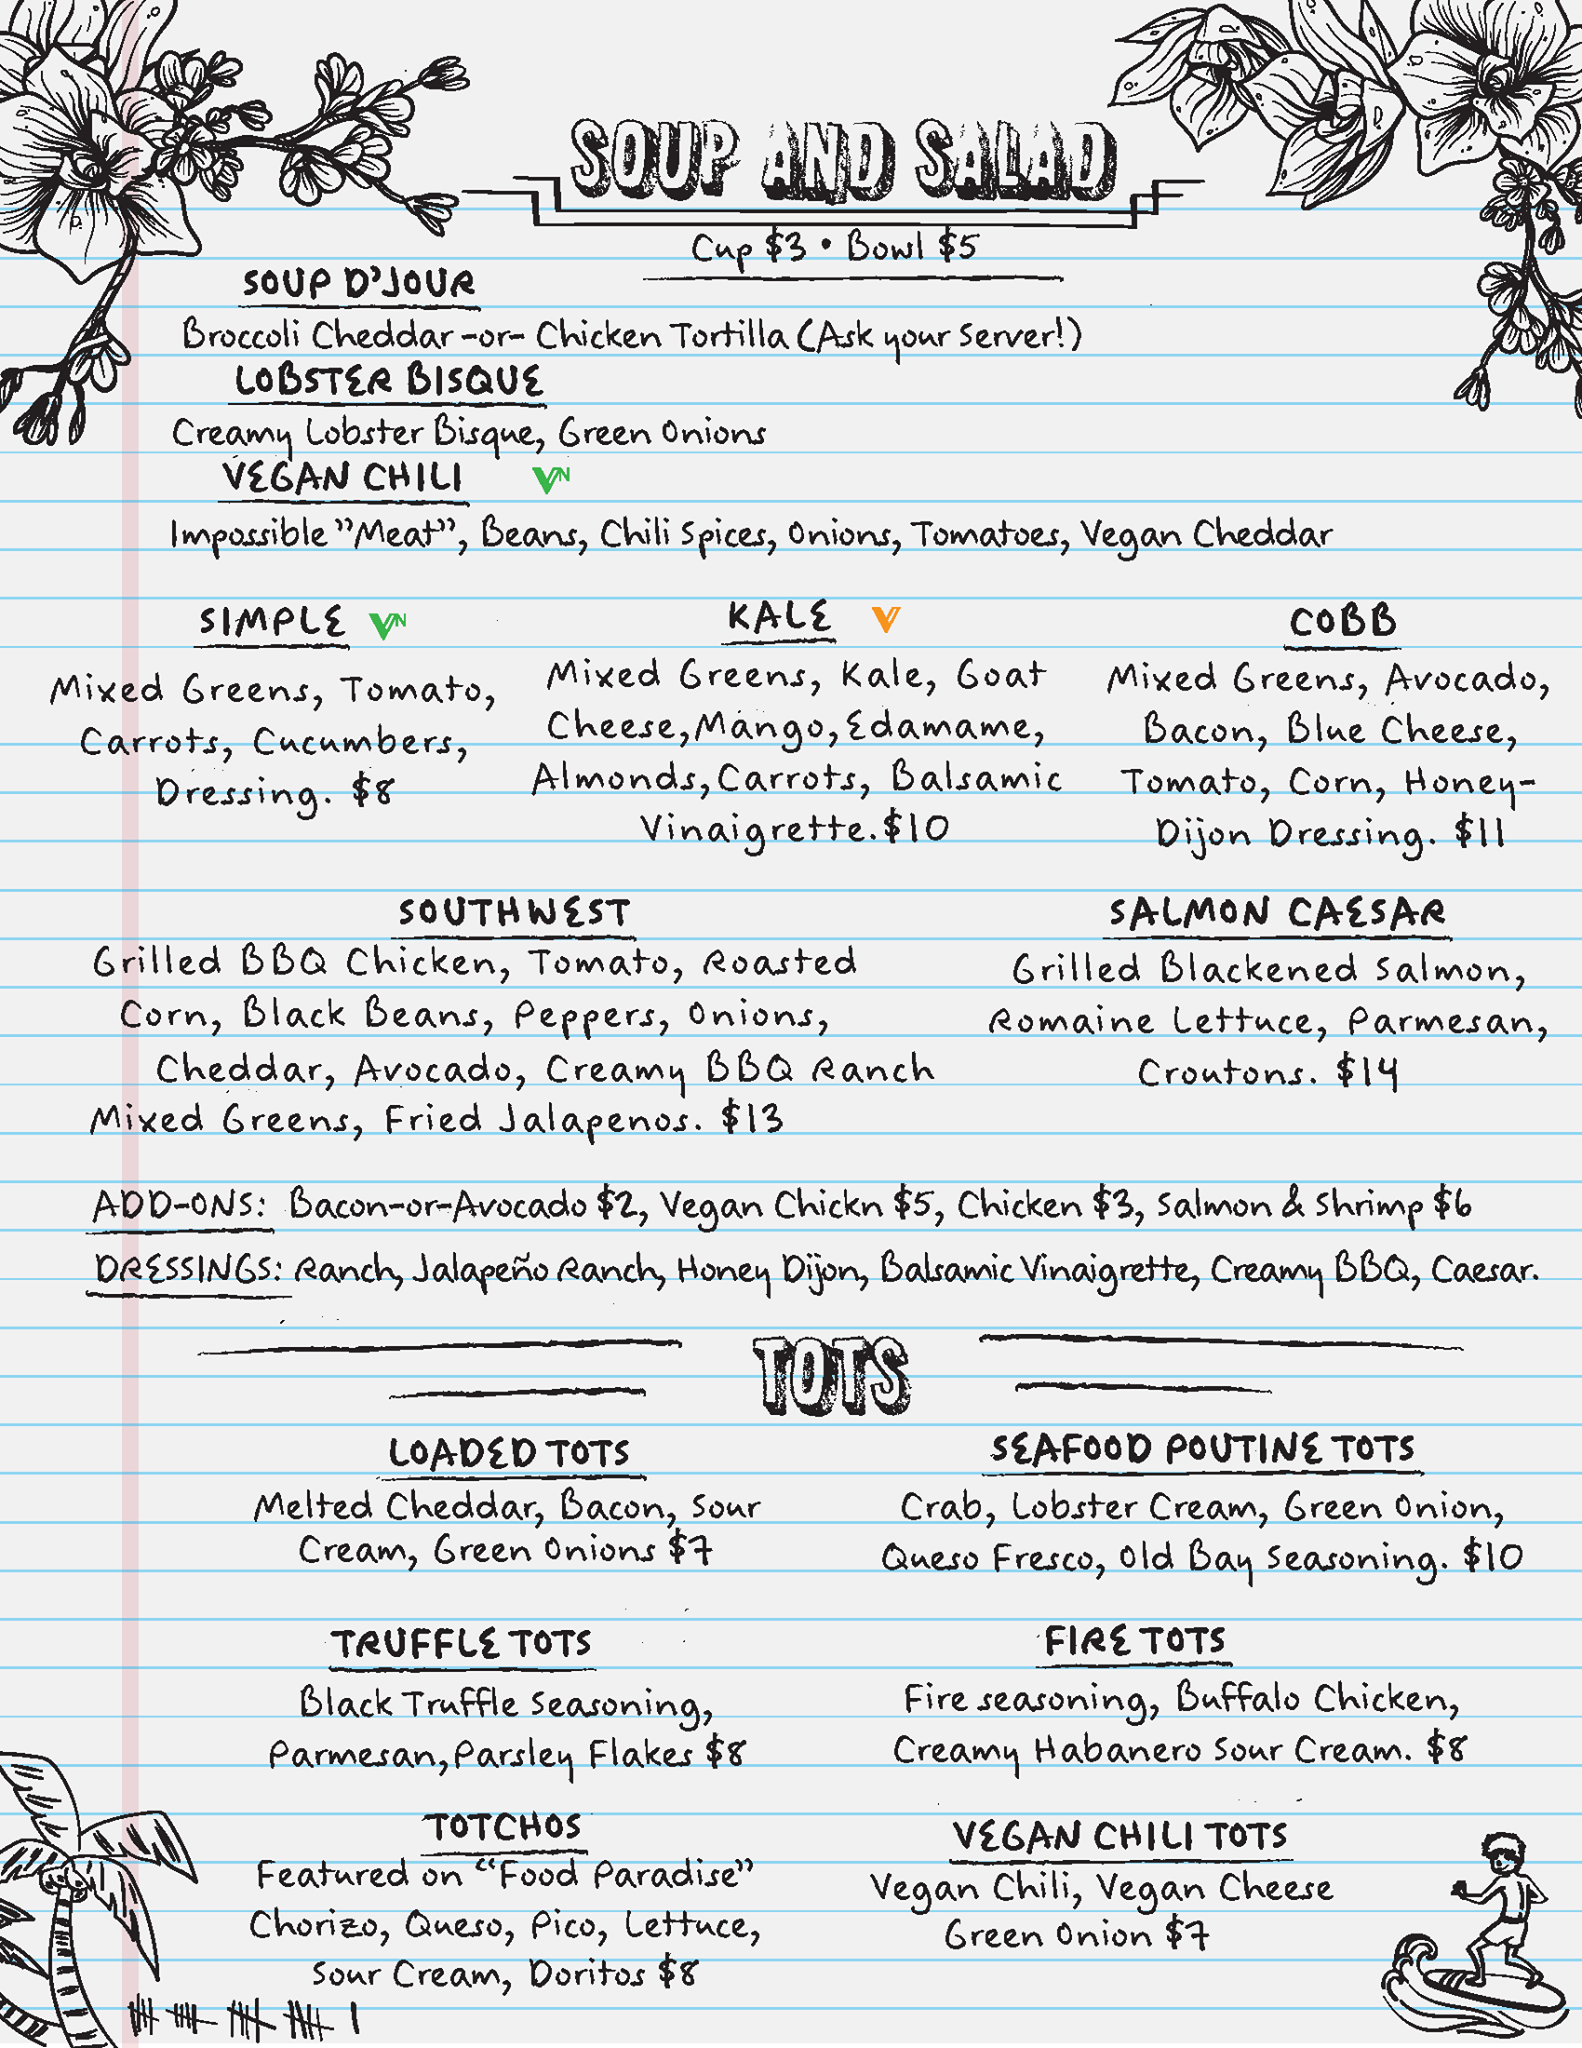 SOUP AND SALAD
Cup $3 • Bowl $5
SOUP D'JOUR
Broccoli Cheddar -or- Chicken Tortilla (Ask your Server!)
LOBSTER BISQUE
Creamy Lobster Bisque, Green Onions
VEGAN CHILI VN
Impossible ”Meat”, Beans, Chili Spices, Onions, Tomatoes, Vegan Cheddar
SIMPLE VN
Mixed Greens, Tomato,
Carrots, Cucumbers,
Dressing. $8
KALE V
Mixed Greens, Kale, Goat
Cheese, Mango, Edamame,
Almonds, Carrots, Balsamic
Vinaigrette. $10
COBB
Mixed Greens, Avocado,
Bacon, Blue Cheese,
Tomato, Corn, Honey-
Dijon Dressing. $11
SOUTHWEST
Grilled BBQ Chicken, Tomato, Roasted
Corn, Black Beans, Peppers, Onions,
Cheddar, Avocado, Creamy BBQ Ranch
Mixed Greens, Fried Jalapenos. $13
SALMON CAESAR
Grilled Blackened Salmon,
Romaine Lettuce, Parmesan,
Croutons. $14
ADD-ONS: Bacon-or-Avocado $2, Vegan Chickn $5, Chicken $3, Salmon & Shrimp $6
DRESSINGS: Ranch, Jalapeño Ranch, Honey Dijon, Balsamic Vinaigrette, Creamy BBQ, Caesar.
TOTS
LOADED TOTS
Melted Cheddar, Bacon, Sour
Cream, Green Onions $7
SEAFOOD POUTINE TOTS
Crab, Lobster Cream, Green Onion,
Queso Fresco, Old Bay Seasoning. $10
TRUFFLE TOTS
Black Truffle Seasoning,
Parmesan, Parsley Flakes $8
FIRE TOTS
Fire seasoning, Buffalo Chicken,
Creamy Habanero Sour Cream. $8
TOTCHOS
Featured on “Food Paradise”
Chorizo, Queso, Pico, Lettuce,
Sour Cream, Doritos $8
VEGAN CHILI TOTS
Vegan Chili, Vegan Cheese
Green Onion $7